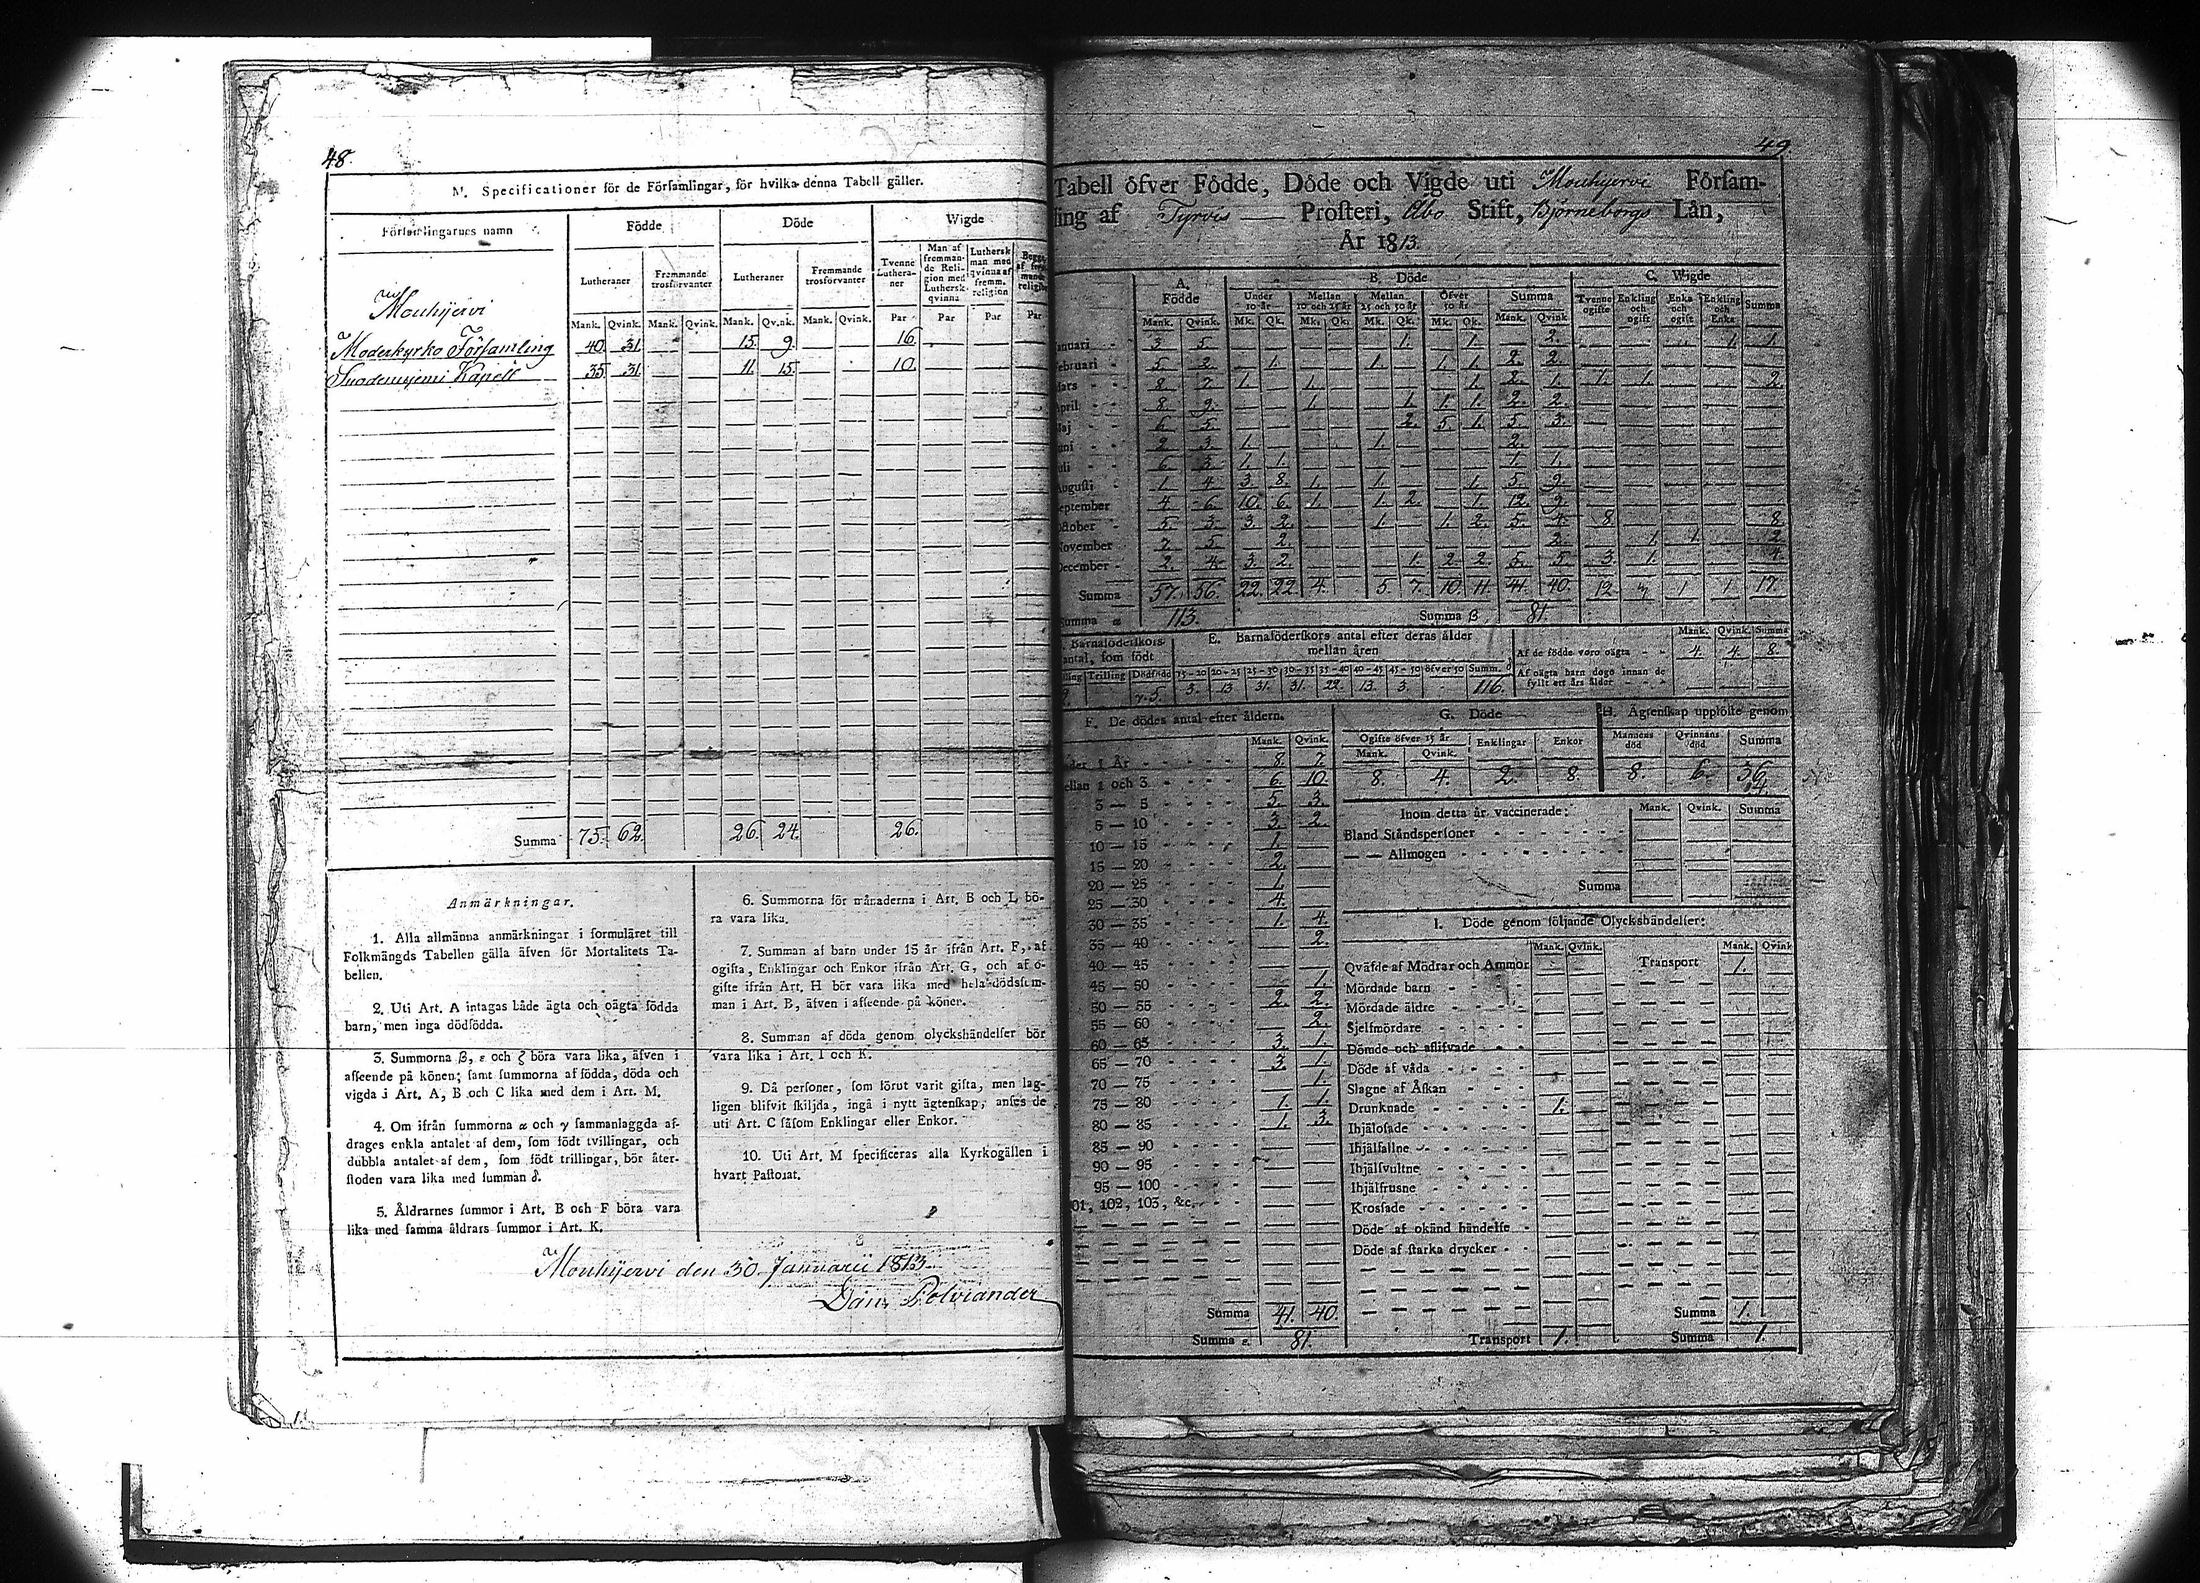 48.
M. Specificationer för de Församlingar, för hvilka denna Tabell gäller.
Församlingarnes namn | Födde | Döde | Wigde
Lutheraner | Fremmande trosförvanter | Lutheraner | Fremmande trosförvanter | Tvenne Lutheraner | Man af fremmande Religion med Luthersk qvinna | Luthersk man med qvinna af fremm. religion
Mank. Qvink. Mank. Qvink. Mank. Qvink. Mank. Qvink. Par Par Par Par
Mouhijervi
Moderkyrko Församling 40. 31. 15. 9. 16.
Suodenniemi Kapell 35. 31. 11. 15. 10.
Summa 75. 62. 26. 24. 26.
Anmärkningar.
1. Alla allmänna anmärkningar i formuläret till
Folkmängds Tabellen gälla äfven för Mortalitets Ta-
bellen.
2. Uti Art. A intagas både ägta och oägta födda
barn, men inga dödfödda.
3. Summorna β, ε och ζ böra vara lika, äfven i
afseende på könen; samt summorna af födda, döda och
vigda i Art. A, B och C lika med dem i Art. M.
4. Om ifrån summorna α och γ sammanlaggda af-
drages enkla antalet af dem, som födt tvillingar, och
dubbla antalet af dem, som födt trillingar, bör åter-
stoden vara lika med summan δ.
5. Åldrarnes summor i Art. B och F böra vara
lika med samma åldrars summor i Art. K.
6. Summorna för månaderna i Art. B och L bö-
ra vara lika.
7. Summan af barn under 15 år ifrån Art. F, af
ogifta, Enklingar och Enkor ifrån Art. G, och af o-
gifte ifrån Art. H bör vara lika med hela dödssum-
man i Art. B, äfven i afseende på könen.
8. Summan af döda genom olyckshändelser bör
vara lika i Art. I och K.
9. Då personer, som förut varit gifta, men lag-
ligen blifvit skiljda, ingå i nytt ägtenskap, anses de
uti Art. C såsom Enklingar eller Enkor.
10. Uti Art. M specificeras alla Kyrkogällen i
hvart Pastorat.
Mouhijervi den 30 Januarii 1813
Dan. Polviander
49
Tabell öfver Födde, Döde och Vigde uti Mouhijervi Församling af Tyrvis Prosteri, Åbo Stift, Björneborgs Län,
År 1813.
A. Födde | B. Döde | C. Wigde
Under 10 år | Mellan 10 och 25 år | Mellan 25 och 50 år | Öfver 50 år | Summa | Tvenne ogifte | Enkling och ogift | Enka och ogift | Enkling och Enka | Summa
Mank. Qvink. Mk. Qk. Mk. Qk. Mk. Qk. Mk. Qk. Mank. Qvink
Januari 3 5 1. 1. 2. 1. 1.
Februari 5. 2. 1. 1. 1. 1. 2. 2.
Mars 8 7 1. 1. 1. 2. 1. 1. 1. 2.
April 8 9. 1. 1. 1. 1. 2. 2.
Maj 6 5 2. 5 1. 5 3.
Juni 2 3 1. 1. 2.
Juli 6 3 1. 1. 1. 1.
Augusti 1 4 3. 8. 1. 1. 1. 5 9.
September 4 6 10. 6. 1. 1. 2 1. 12. 9.
October 5 3 3 2. 1. 1. 2. 5. 4. 8 8
November 7. 5 2. 2. 1. 1. 2
December 2 4 3. 2. 1. 2 2 5 5. 3. 1. 4.
Summa 57. 56. 22. 22. 4. 5. 7. 10. 11. 41. 40. 12 3 1 1 17.
Summa α 113. Summa β 81.
Barnaföderskors antal, som födt
Trilling Dödfödd
γ. 5.
E. Barnaföderskors antal efter deras ålder mellan åren
15-20 20-25 25-30 30-35 35-40 40-45 45-50 öfver 50 Summ. δ
3. 13 31. 31. 22. 13. 3. 116.
Mank. Qvink. Summa
Af de födde voro oägta 4. 4. 8.
Af oägta barn dogo innan de fyllt ett års ålder
F. De dödes antal efter åldern.
Mank. Qvink.
Under 1 År 8. 7
Mellan 1 och 3 6 10
3 — 5 5. 3.
5 — 10 3 2
10 — 15 1.
15 — 20 2.
20 — 25 1.
25 — 30 4.
30 — 35 1. 4
35 — 40 2.
40 — 45
45 — 50 1.
50 — 55 2. 2.
55 — 60 2.
60 — 65 3. 1.
65 — 70 3. 1.
70 — 75 1.
75 — 80 1. 1.
80 — 85 1. 3.
85 — 90
90 — 95
95 — 100
101, 102, 103, &c.
Summa 41. 40.
Summa ε. 81.
G. Döde
Ogifte öfver 15 år | Enklingar | Enkor
Mank. Qvink.
8. 4. 2. 8
H. Ägtenskap upplöste genom
Mannens död | Qvinnans död | Summa
8. 6.
Inom detta år vaccinerade: Mank. Qvink. Summa
Bland Ståndspersoner
— — Allmogen
Summa
I. Döde genom följande Olyckshändelser:
Mank. Qvink. Mank. Qvink
Qväfde af Mödrar och Ammor Transport 1.
Mördade barn
Mördade äldre
Sjelfmördare
Dömde och aflifvade
Döde af våda
Slagne af Åskan
Drunknade 1.
Ihjälosade
Ihjälfallne
Ihjälsvultne
Ihjälfrusne
Krossade
Döde af okänd händelse
Döde af starka drycker
Summa 1.
Transport 1. Summa 1.